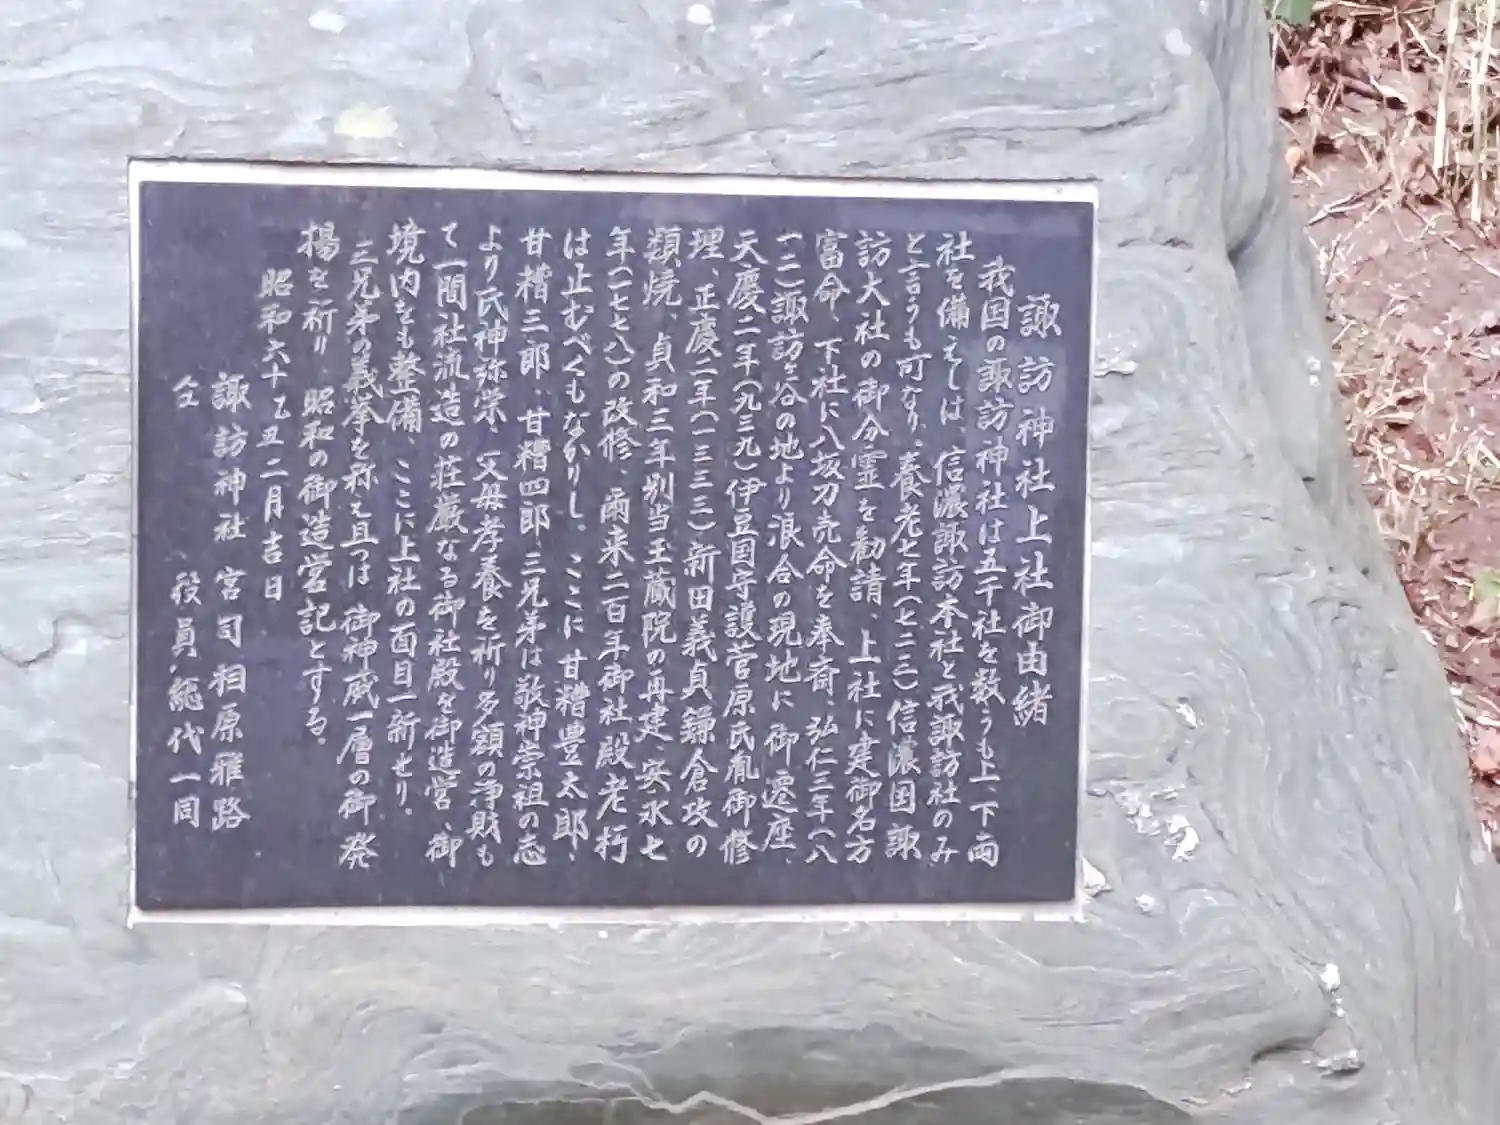 諏訪神社上社御由緒
我国の諏訪神社は五千社を数うも上、下両
社を備えしは、信濃諏訪本社と我諏訪社のみ
と言うも可なり、養老七年(七二三)信濃国諏
訪大社の御分霊を勧請、上社に建御名方
富命、下社に八坂刀売命を奉斎、弘仁三年(八
一二)諏訪ヶ谷の地より浪合の現地に御遷座、
天慶二年(九三九)伊豆国守護菅原氏胤御修
理、正慶二年(一三三三)新田義貞鎌倉攻の
類焼、貞和三年別当玉蔵院の再建、安永七
年(一七七八)の改修、爾来二百年御社殿老朽
は止むべくもなかりし。ここに甘糟豊太郎、
甘糟三郎、甘糟四郎三兄弟は敬神崇祖の志
より氏神弥栄、父母孝養を祈り多額の浄財も
て一間社流造の荘厳なる御社殿を御造営、御
境内をも整備、ここに上社の面目一新せり。
三兄弟の義挙を称え且つは御神威一層の御発
揚を祈り昭和の御造営記とする。
昭和六十乙丑二月吉日
諏訪神社 宮司 相原雅路
仝 役員、総代一同